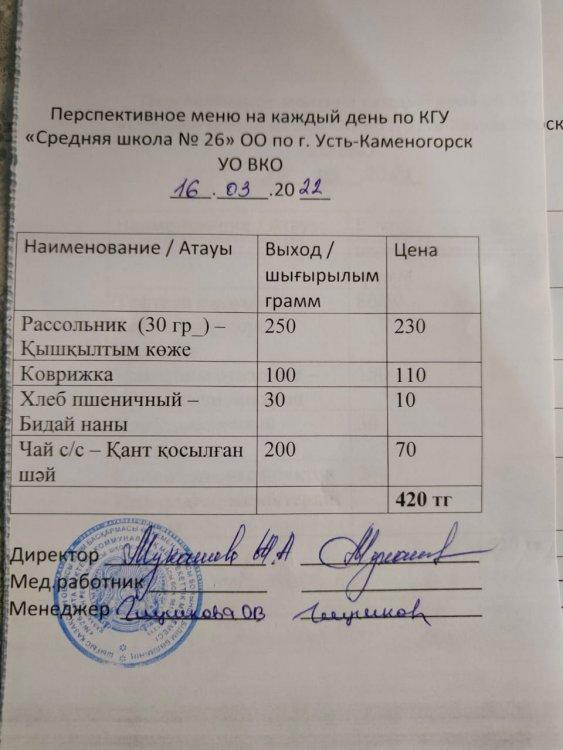 Перспективное меню на каждый день по КГУ
«Средняя школа № 26» ОО по г. Усть-Каменогорск
УО ВКО
16.03.2022
Наименование / Атауы Выход / шығырылым грамм Цена
Рассольник (30 гр_) – Қышқылтым көже 250 230
Коврижка 100 110
Хлеб пшеничный – Бидай наны 30 10
Чай с/с – Қант қосылған шәй 200 70
420 тг
Директор
Мед.работник
Менеджер